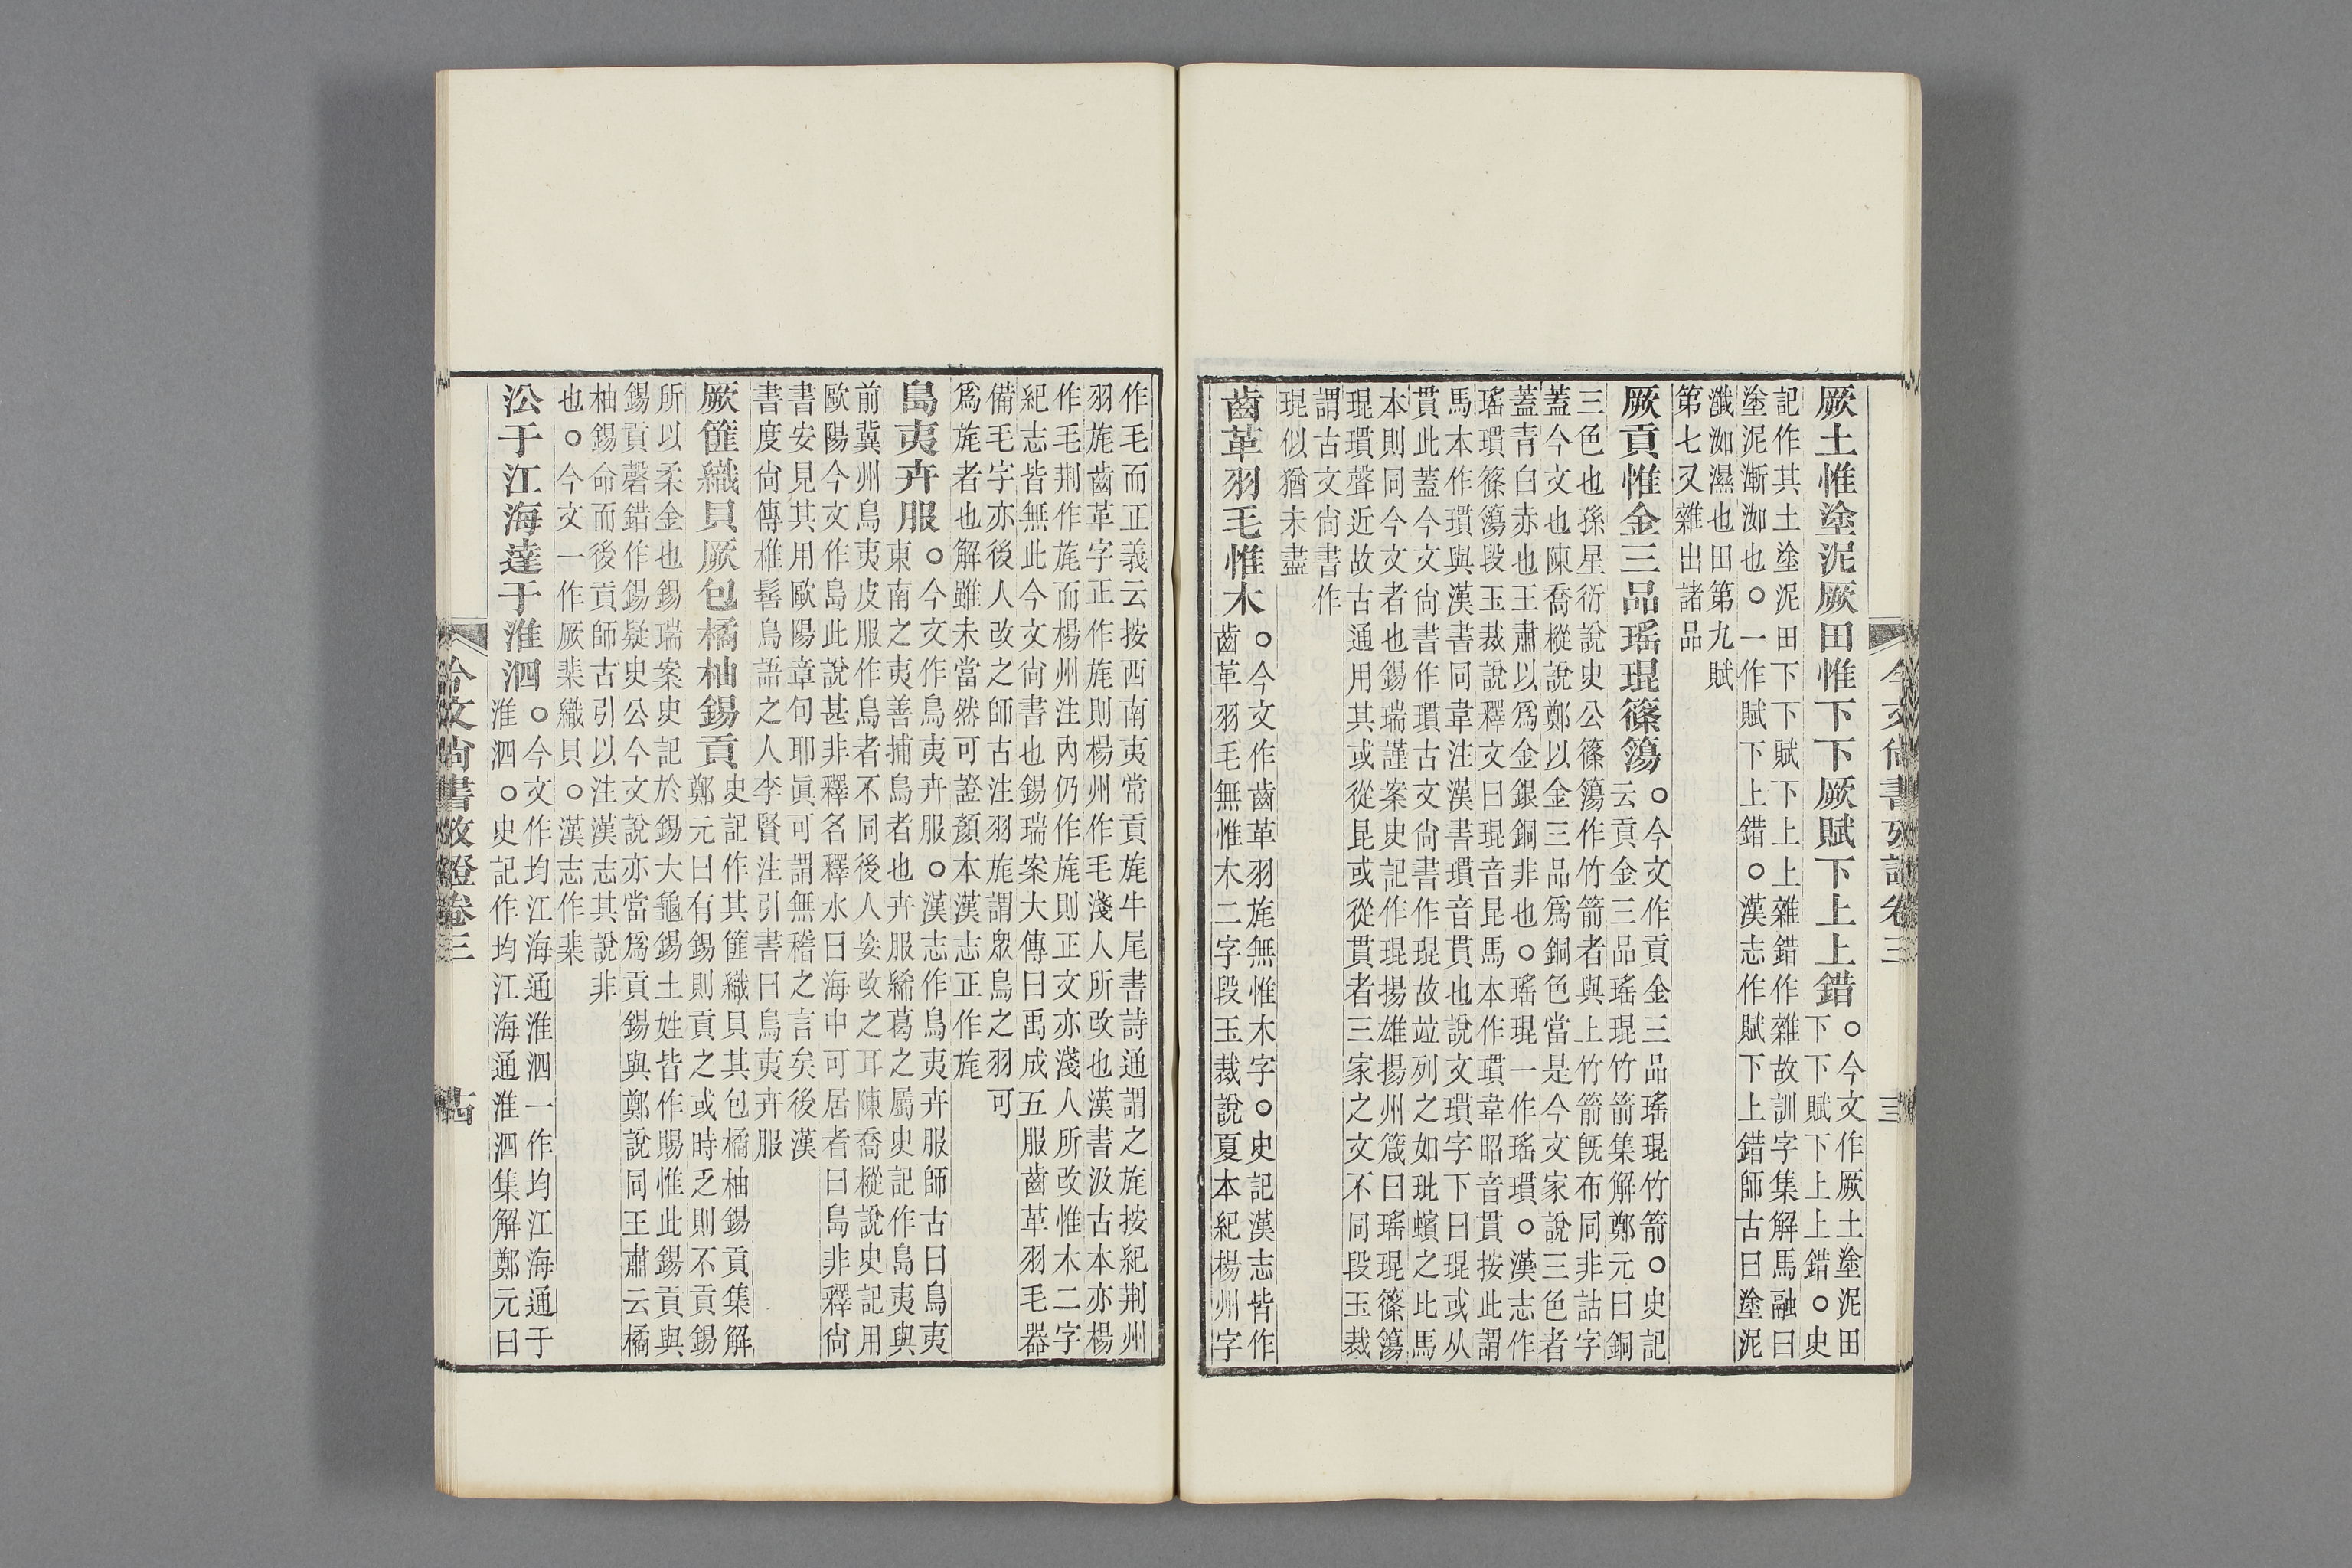 今文尚書攷證卷三
厥土惟塗泥厥田惟下下厥賦下上上錯。今文作厥土塗泥田
下下賦下上上錯。史
記作其土塗泥田下下賦下上上雜錯作雜故訓字集解馬融曰
塗泥漸洳也。一作賦下上錯。漢志作賦下上錯師古曰塗泥
瀸洳濕也田第九賦
第七又雜出諸品
厥貢惟金三品瑤琨篠簜。今文作貢金三品瑤琨竹箭。史記
云貢金三品瑤琨竹箭集解鄭元曰銅
三色也孫星衍說史公篠簜作竹箭者與上竹箭旣布同非詁字
蓋今文也陳喬樅說鄭以金三品爲銅色當是今文家說三色者
蓋青白赤也王肅以爲金銀銅非也。瑤琨一作瑤瑻。漢志作
瑤瑻篠簜段玉裁說釋文曰琨音昆馬本作瑻韋昭音貫按此謂
馬本作瑻與漢書同韋注漢書瑻音貫也說文瑻字下曰琨或从
貫此蓋今文尙書作瑻古文尙書作琨故竝列之如玭蠙之比馬
本則同今文者也錫瑞謹案史記作琨揚雄揚州箴曰瑤琨篠簜
琨瑻聲近故古通用其或從昆或從貫者三家之文不同段玉裁
謂古文尙書作
琨似猶未盡
齒革羽毛惟木。今文作齒革羽旄無惟木字。史記漢志皆作
齒革羽毛無惟木二字段玉裁說夏本紀楊州字
作毛而正義云按西南夷常貢旄牛尾書詩通謂之旄按紀荆州
羽旄齒革字正作旄則楊州作毛淺人所改也漢書汲古本亦楊
作毛荆作旄而楊州注內仍作旄則正文亦淺人所改惟木二字
紀志皆無此今文尙書也錫瑞案大傳曰禹成五服齒革羽毛器
備毛字亦後人改之師古注羽旄謂眾鳥之羽可
爲旄者也解雖未當然可證顏本漢志正作旄
島夷卉服。今文作鳥夷卉服。漢志作鳥夷卉服師古曰鳥夷
東南之夷善捕鳥者也卉服絺葛之屬史記作島夷與
前冀州鳥夷皮服作鳥者不同後人妄改之耳陳喬樅說史記用
歐陽今文作島此說甚非釋名釋水曰海中可居者曰島非釋尙
書安見其用歐陽章句耶眞可謂無稽之言矣後漢
書度尙傳椎髻鳥語之人李賢注引書曰鳥夷卉服
厥篚織貝厥包橘柚錫貢史記作其篚織貝其包橘柚錫貢集解
鄭元曰有錫則貢之或時乏則不貢錫
所以柔金也錫瑞案史記於錫大龜錫土姓皆作賜惟此錫貢與
錫貢磬錯作錫疑史公今文說亦當爲貢錫與鄭說同王肅云橘
柚錫命而後貢師古引以注漢志其說非
也。今文一作厥棐織貝。漢志作棐
㳂于江海達于淮泗。今文作均江海通淮泗一作均江海通于
淮泗。史記作均江海通淮泗集解鄭元曰
今文尙書攷證卷三